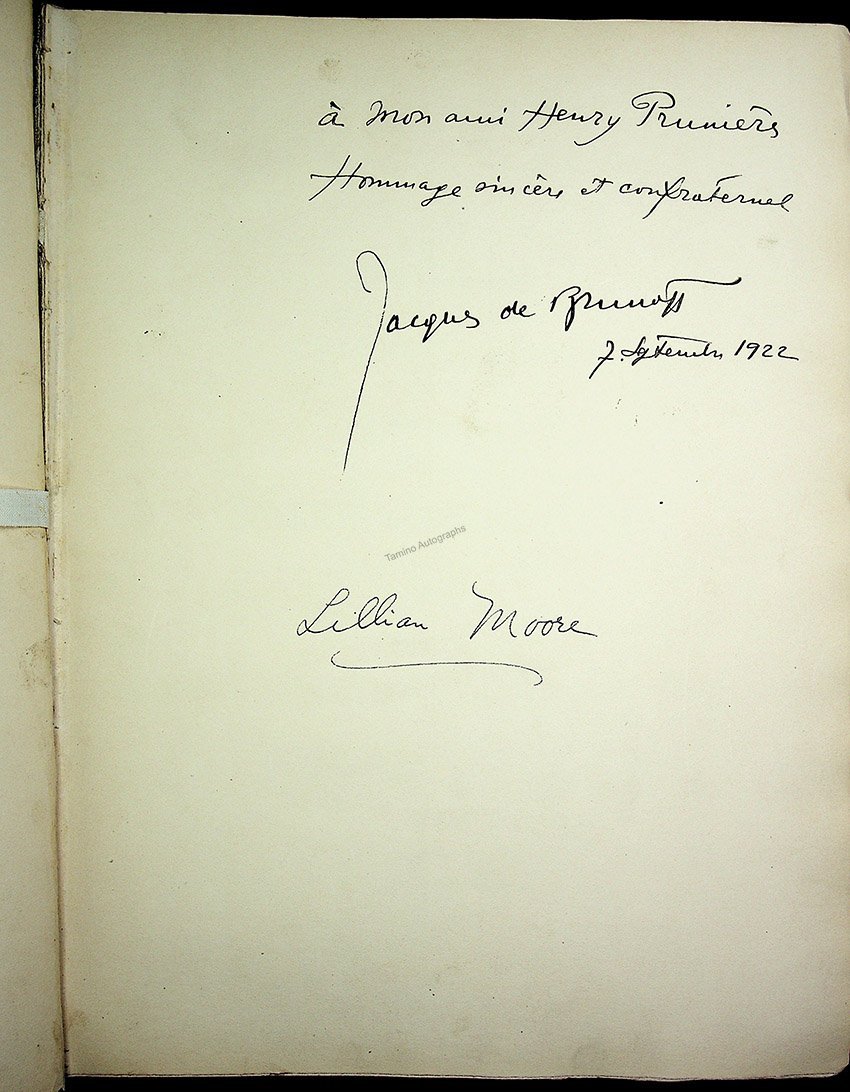 à Mon ami Henry Prunières
Hommage sincère et confraternel
Jacques de Brunoff
7. Septembre 1922
Tamino Autographs
Lillian Moore